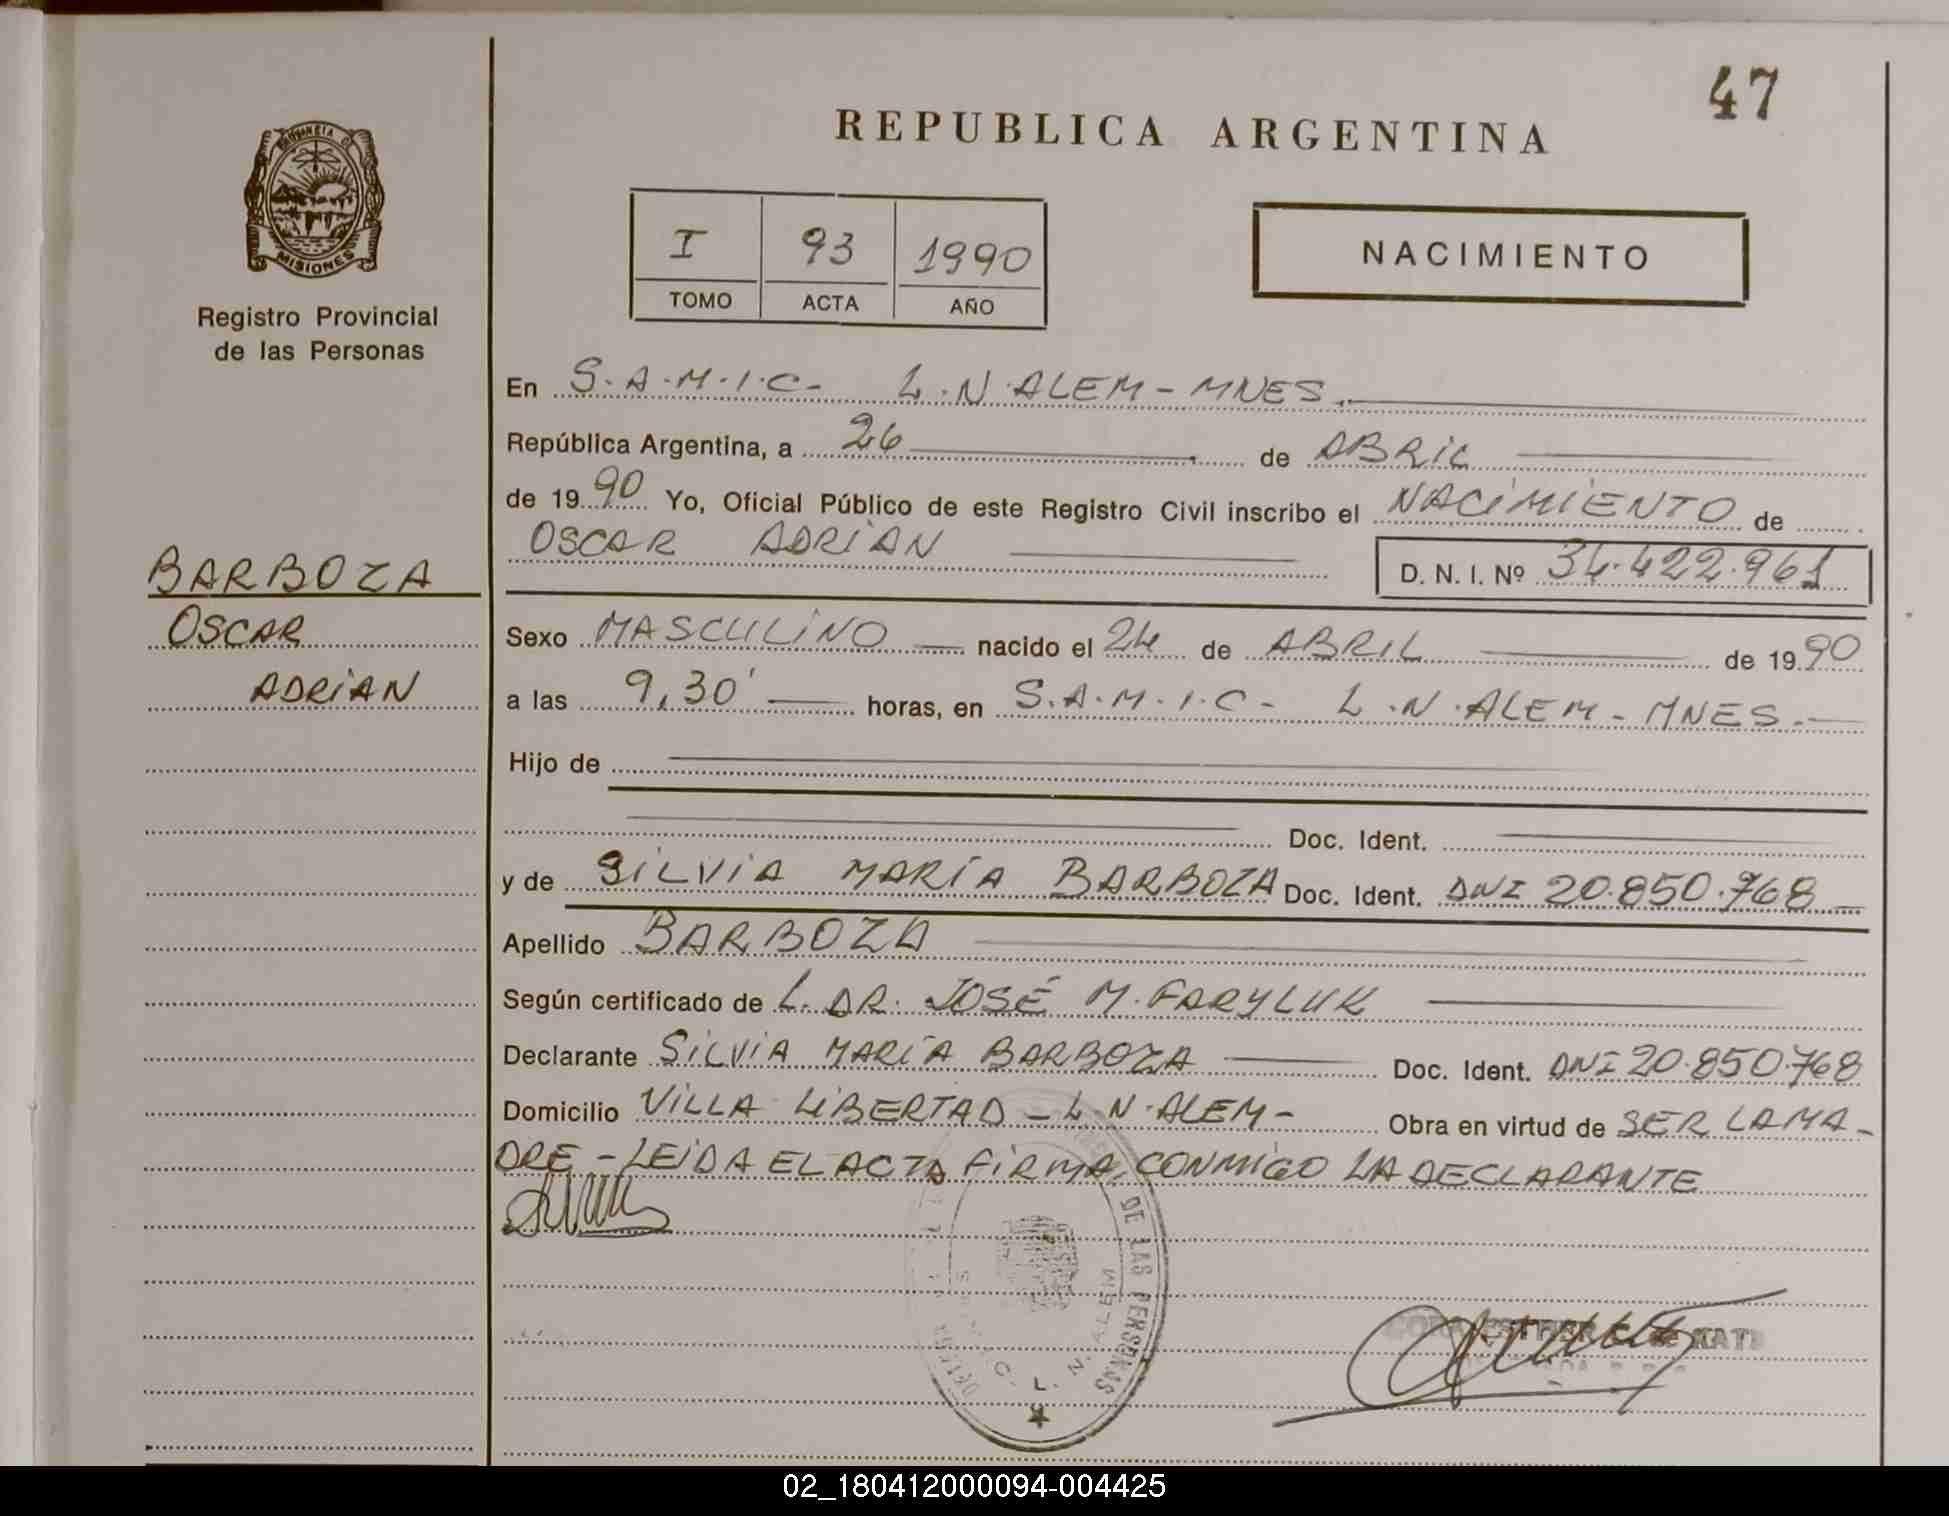 47
REPUBLICA ARGENTINA
PROVINCIA D
MISIONES
Registro Provincial
de las Personas
I 93 1990
TOMO ACTA AÑO
NACIMIENTO
En S.A.M.I.C- L.N.ALEM-MNES.
República Argentina, a 26 de ABRIL
de 1990 Yo, Oficial Público de este Registro Civil inscribo el NACIMIENTO de
OSCAR ADRIAN D. N. I. Nº 34.422.961
BARBOZA
OSCAR
ADRIAN
Sexo MASCULINO nacido el 24 de ABRIL de 1990
a las 9,30' horas, en S.A.M.I.C- L.N.ALEM-MNES.
Hijo de
Doc. Ident.
y de SILVIA MARÍA BARBOZA Doc. Ident. DNI 20.850.768
Apellido BARBOZA
Según certificado de L. DR. JOSÉ M. FARYLUK
Declarante SILVIA MARÍA BARBOZA Doc. Ident. DNI 20.850.768
Domicilio VILLA LIBERTAD - L.N.ALEM- Obra en virtud de SER LA MA-
DRE - LEIDA EL ACTA FIRMA CONMIGO LA DECLARANTE
DE LAS PERSONAS
L. N. ALEM
ESTHER
02_180412000094-004425